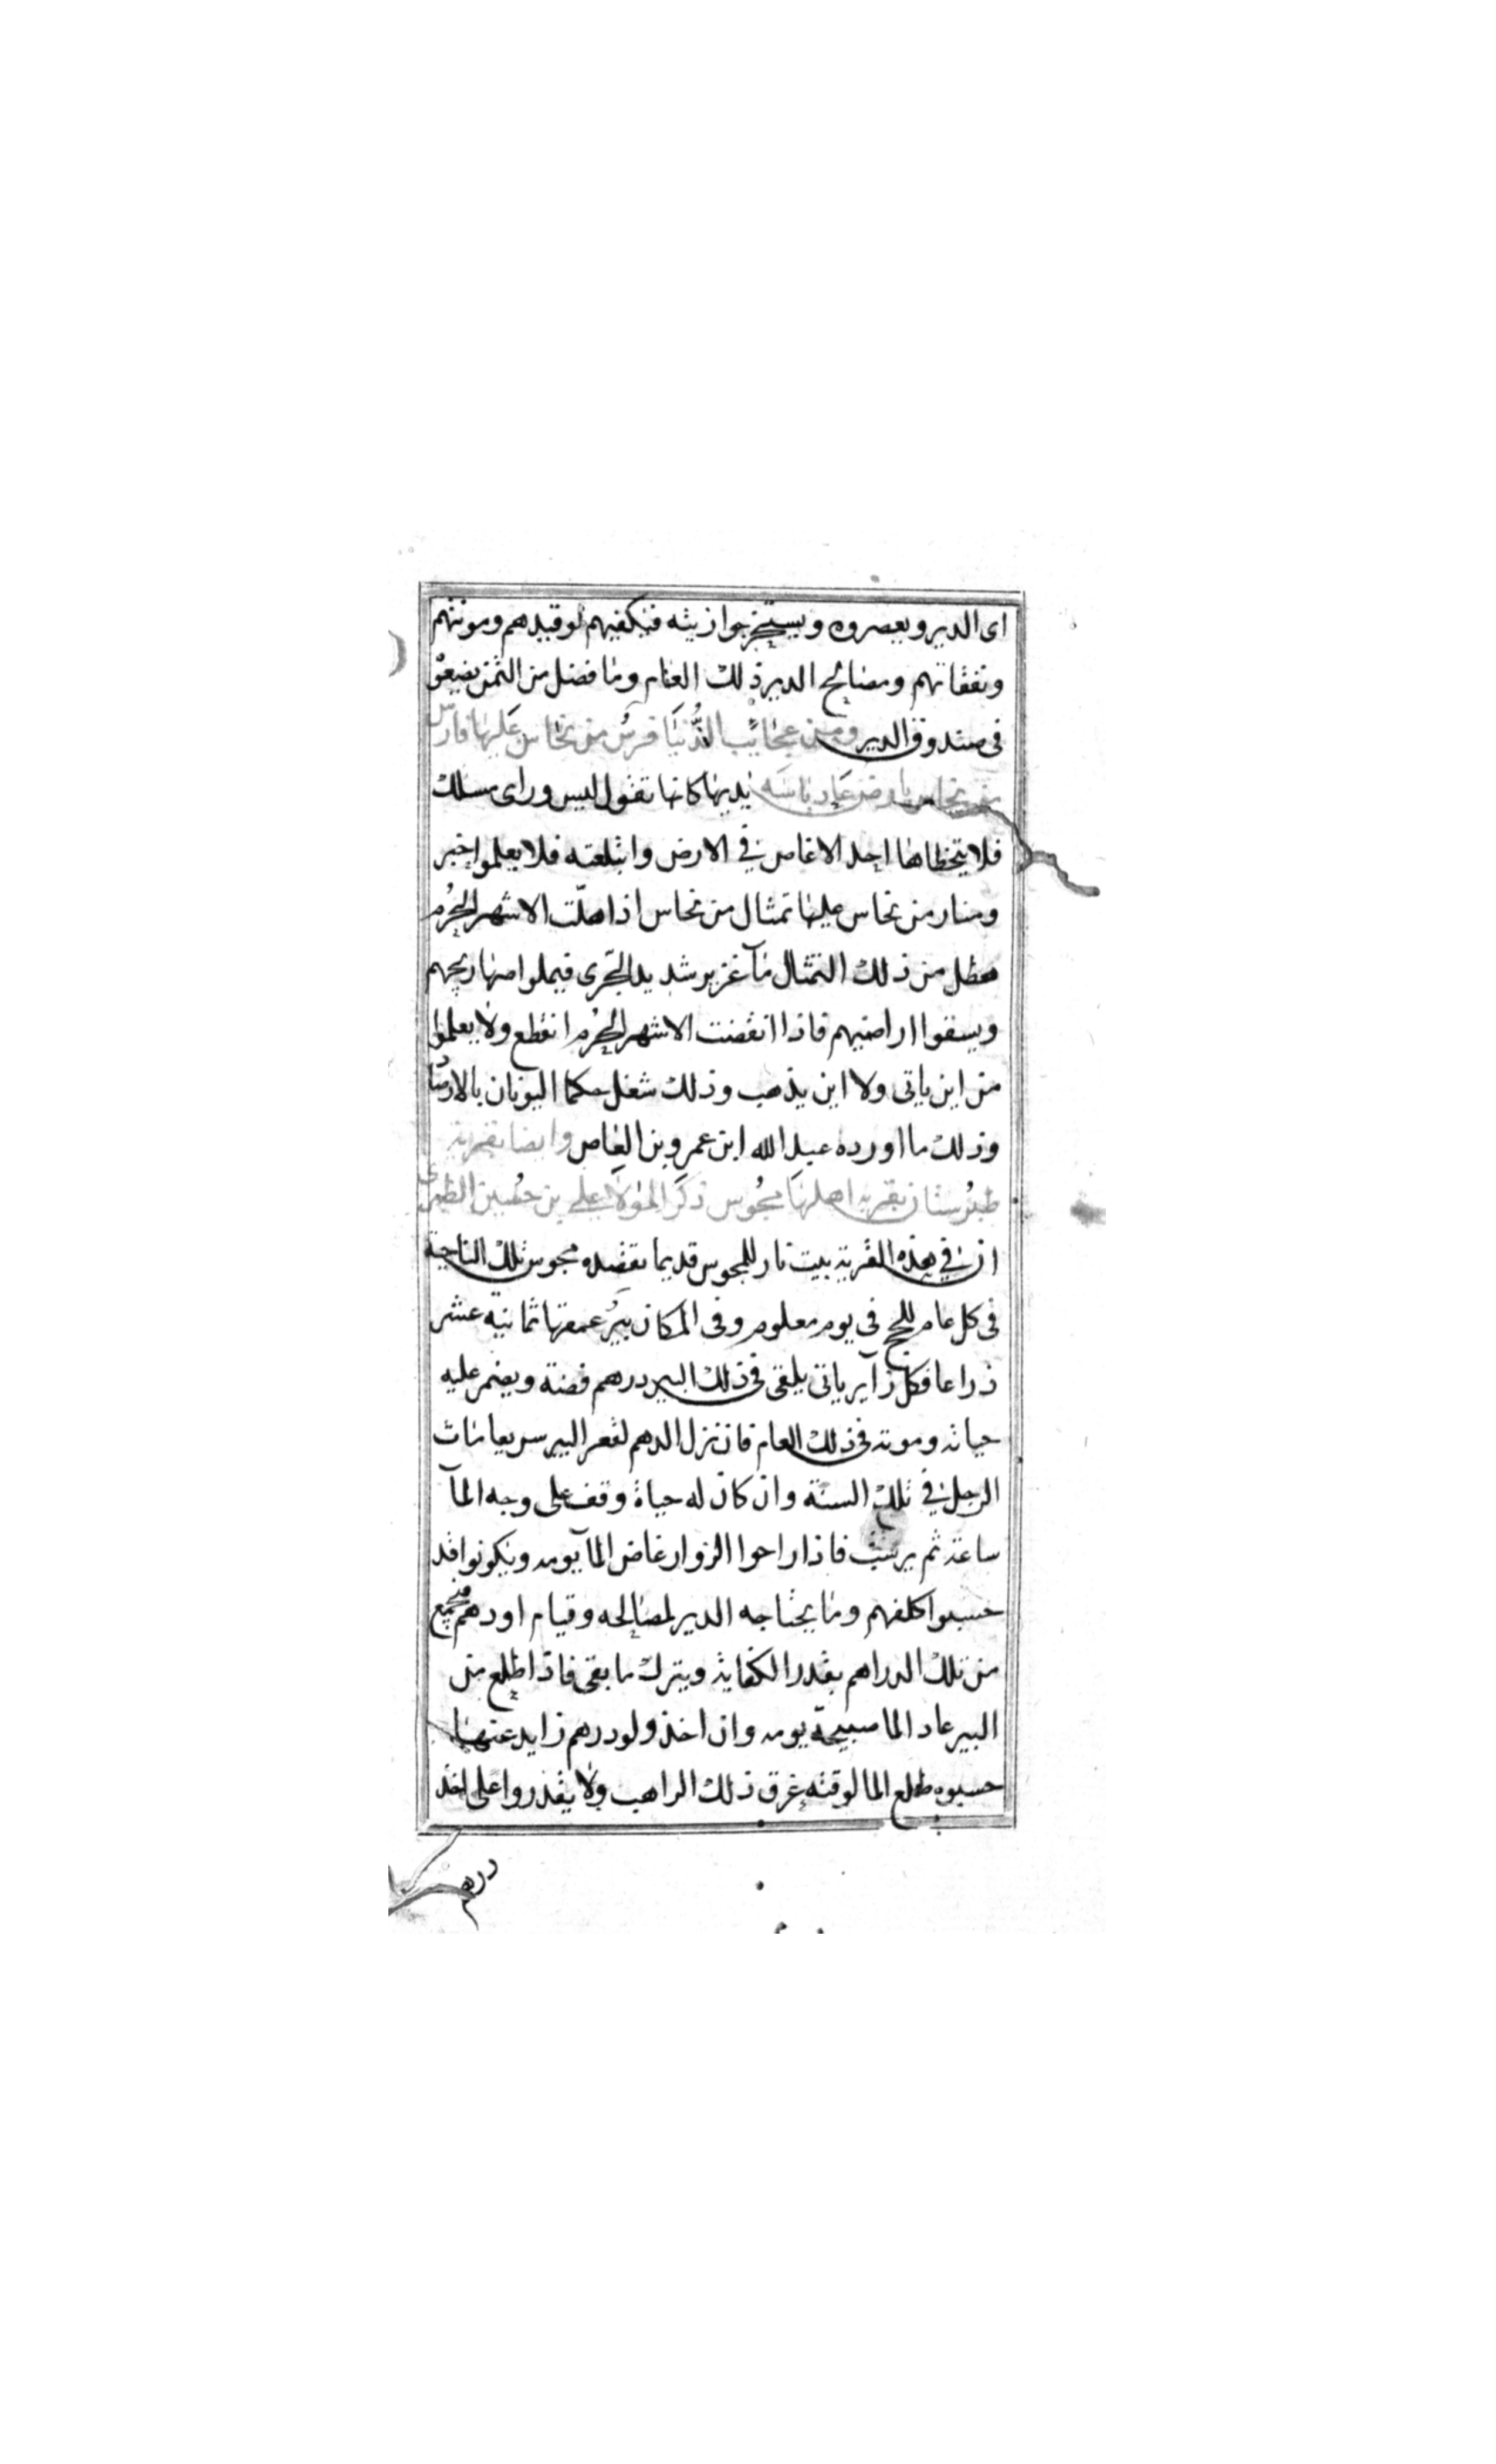 اى الدير ويعصروه ويستخرجوا زيته فيكفيهم لوقيدهم ومونتهم
ونفقاتهم ومصالح الدير ذلك العام وما فضل من الثمن يضيعوا
فى صندوق الدير ومن عجايب الدنيا فرس من نحاس عليها فارس
من نحاس بارض عاد باسه يديها كانها تقول ليس وراى مسلك
فلا يتخطاها احد الا غاص في الارض وابتلعته فلا يعلموا خبر
ومنار من نحاس عليها تمثال من نحاس اذا هلّت الاشهر الحُرُم
هطل من ذلك التمثال مآ غزير شديد الجرى فيملوا صهاريجهم
ويسقوا اراضيهم فاذا انقضت الاشهر الحُرُم انقطع ولا يعلموا
من اين ياتى ولا اين يذهب وذلك شغل حكما اليونان بالارصاد
وذلك ما اورده عبد الله ابن عمرو بن العاص وايضا بقرية
طبرستان بقرية اهلها مجوس ذكر المولا على بن حسين الطبرى
ان في هذه القرية بيت نار للمجوس قديما تقصده مجوس تلك الناحية
فى كل عام للحج فى يوم معلوم وفى المكان بير عمقها ثمانية عشر
ذراعا فكل زآير ياتى يلقى فى ذلك البير درهم فضة ويضمر عليه
حياته وموته فى ذلك العام فان نزل الدهم لقعر البير سريعا مات
الرجل في تلك السنة وان كان له حياة وقف على وجه المآ
ساعة ثم يرسب فاذا راحوا الزوار غاض المآ يومه ويكونوا قد
حسبوا كلفهم وما يحتاجه الدير لمصالحه وقيام اودهم فيجمع
من تلك الدراهم بقدر الكفاية ويترك ما بقى فاذا طلع من
البير عاد الما صبيحة يومه وان اخذ ولو درهم زايد عنها
حسبوه طلع الما لوقته غرق ذلك الراهب ولا يقدروا على اخذ
درهم